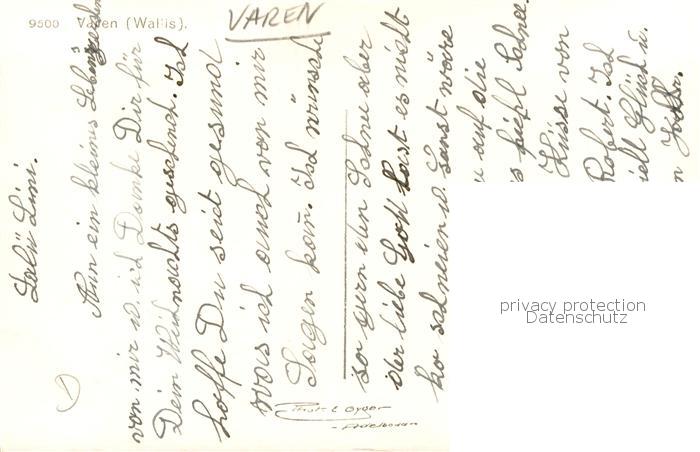 9500 Varen (Wallis).
VAREN
Salü Lini.
Nun ein kleines Lebenszeichen
von mir u. ich Danke Dir für
Dein Weihnachts geschenk. Ich
hoffe Du seist gesund
was ich auch von mir
Sagen kan̄. Ich wünsch
so gern den Schnee aber
der liebe Gott lasst es nicht
ko schneien u. Sonst wäre
auf die
Schnee.
Küsse von
Robert. Ich
Glück u.
n
Phot. E. Gyger
Adelboden
privacy protection
Datenschutz